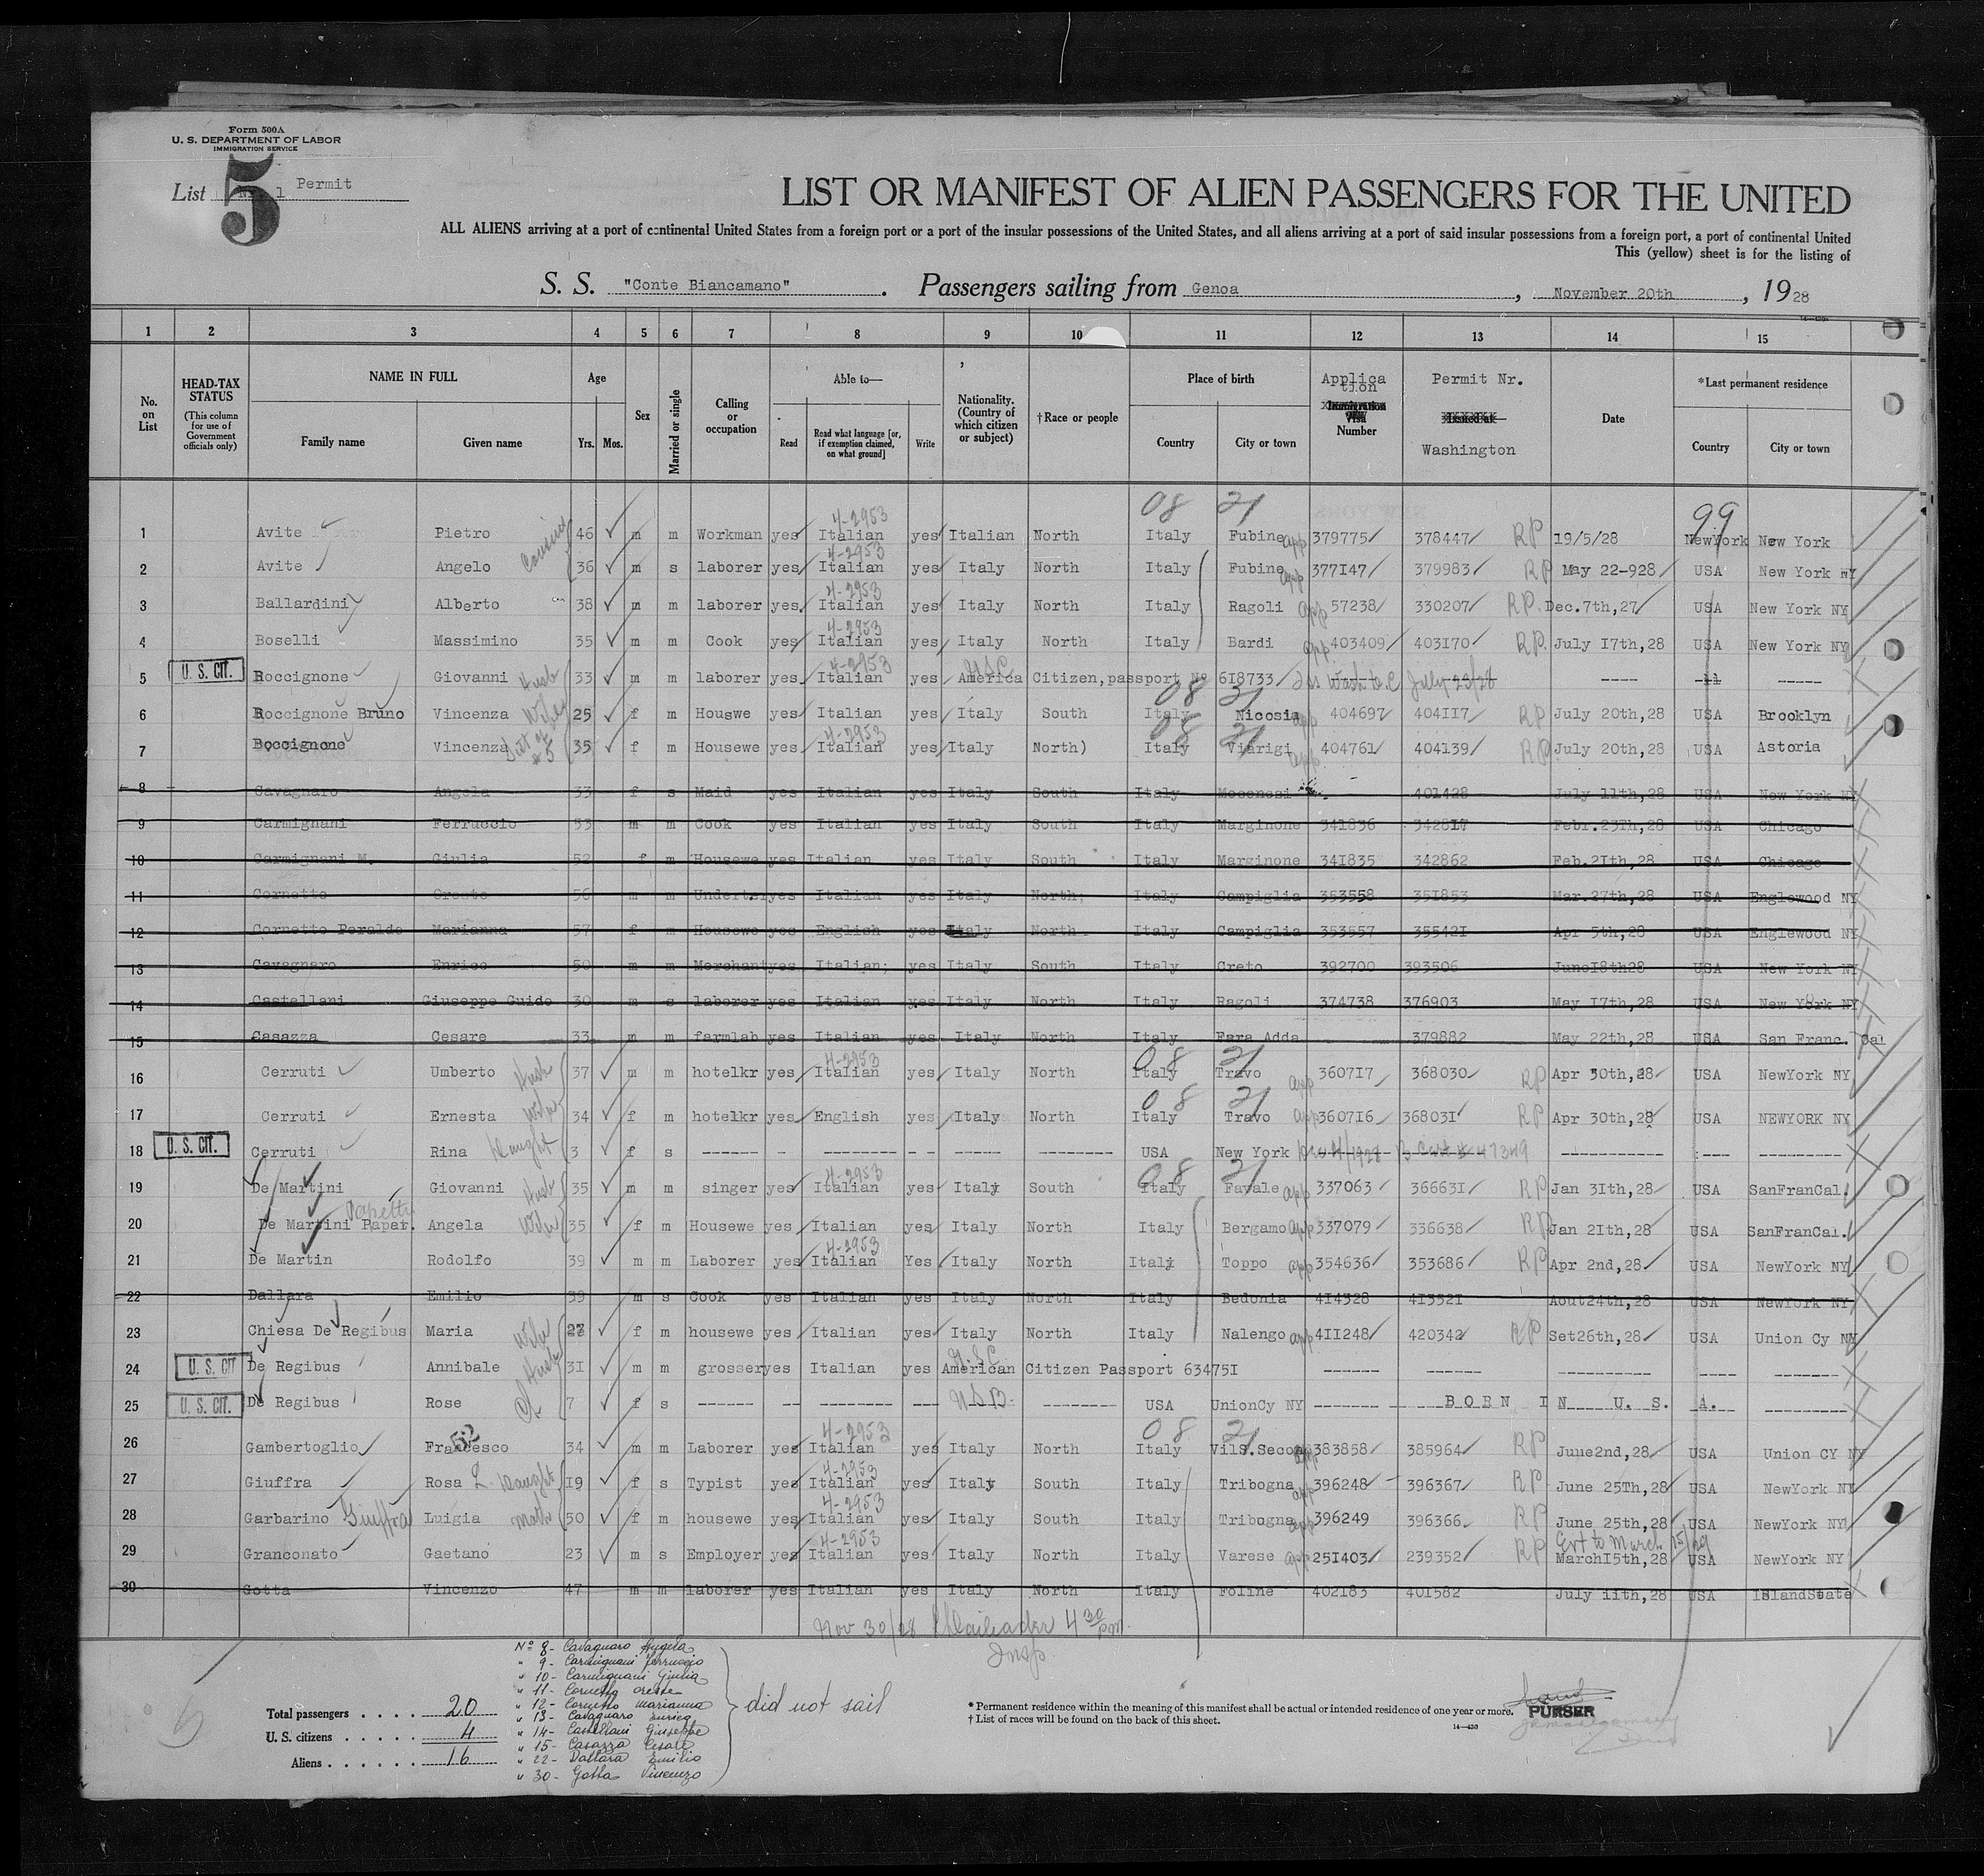 Form 500A
U. S. DEPARTMENT OF LABOR
IMMIGRATION SERVICE
List 5 1 Permit
LIST OR MANIFEST OF ALIEN PASSENGERS FOR THE UNITED
ALL ALIENS arriving at a port of continental United States from a foreign port or a port of the insular possessions of the United States, and all aliens arriving at a port of said insular possessions from a foreign port, a port of continental United
This (yellow) sheet is for the listing of
S. S. "Conte Biancamano". Passengers sailing from Genoa, November 20th, 1928
1 2 3 4 5 6 7 8 9 10 11 12 13 14 15
No. on List HEAD-TAX STATUS (This column for use of Government officials only) NAME IN FULL Family name Given name Age Yrs. Mos. Sex Married or single Calling or occupation Able to— Read Read what language [or, if exemption claimed, on what ground] Write Nationality. (Country of which citizen or subject) †Race or people Place of birth Country City or town Application Immigration Visa Number Permit Nr. Issued at Washington Date *Last permanent residence Country City or town
08 21 4-2953 99
1 Avite Pietro Cousins 46 m m Workman yes Italian yes Italian North Italy Fubine app 379775 378447 RP 19/5/28 NewYork New York
4-2953
2 Avite Angelo 36 m s laborer yes Italian yes Italy North Italy Fubine app 377147 379983 RP May 22-928 USA New York NY
4-2953
3 Ballardini Alberto 38 m m laborer yes Italian yes Italy North Italy Ragoli app 57238 330207 RP. Dec.7th,27 USA New York NY
4-2953
4 Boselli Massimino 35 m m Cook yes Italian yes Italy North Italy Bardi app 403409 403170 RP. July 17th,28 USA New York NY
4-2953 USC
5 U. S. CIT. Roccignone Giovanni Husb 33 m m laborer yes Italian yes America Citizen,passport No 618733 Iss Wash D.C July 23/28 ---- -----
08 21
6 Roccignone Bruno Vincenza Wife 25 f m Houswe yes Italian yes Italy South Italy Nicosia app 404697 404117 RP July 20th,28 USA Brooklyn
4-2953 08 21
7 Roccignone Vincenza Sist of #5 35 f m Housewe yes Italian yes Italy North) Italy Viarigi app. 404761 404139 RP July 20th,28 USA Astoria
8 Cavagnaro Angela 33 f s Maid yes Italian yes Italy South Italy Moconesi 401428 July 11th,28 USA New York NY
9 Carmignani Ferruccio 53 m m Cook yes Italian yes Italy South Italy Marginone 341836 342817 Febr.23Th,28 USA Chicago
10 Carmignani M. Giulia 52 f m Housewe yes Italian yes Italy South Italy Marginone 341835 342862 Feb.21th,28 USA Chicago
11 Cornetto Oreste 56 m m yes Italian yes Italy North; Italy Campiglia 353558 351853 Mar.27th,28 USA Englewood NY
12 Cornetto Peraldo Marianna 57 f m Housewe yes English yes Italy North Italy Campiglia 353557 355421 Apr 5th,28 USA Englewood NY
13 Cavagnaro Enrico 50 m m Merchant yes Italian; yes Italy South Italy Creto 392700 393506 June18th28 USA New York NY
14 Castellani Giuseppe Guido 30 m s laborer yes Italian yes Italy North Italy Ragoli 374738 376903 May 17th,28 USA New York NY
15 Casazza Cesare 33 m m farmlab yes Italian yes Italy North Italy Fara Adda 379882 May 22th,28 USA San Franc. Cal
4-2953 08 21
16 Cerruti Umberto Husb 37 m m hotelkr yes Italian yes Italy North Italy Travo app 360717 368030 RP Apr 30th,28 USA NewYork NY
08 21
17 Cerruti Ernesta Wife 34 f m hotelkr yes English yes Italy North Italy Travo app 360716 368031 RP Apr 30th,28 USA NEWYORK NY
18 U. S. CIT. Cerruti Rina Daught 3 f s ------ - -------- - - ----- -------- USA New York 47349 ----------- ---- ---------
4-2953 08 21
19 De Martini Giovanni Husb 35 m m singer yes Italian yes Italy South Italy Favale app 337063 366631 RP Jan 31th,28 USA SanFranCal.
Papetti
20 De Martini Papet. Angela Wife 35 f m Housewe yes Italian yes Italy North Italy Bergamo app 337079 336638 RP Jan 21th,28 USA SanFranCal.
4-2953
21 De Martin Rodolfo 39 m m Laborer yes Italian Yes Italy North Italy Toppo app 354636 353686 RP Apr 2nd,28 USA NewYork NY
22 Dallara Emilio 39 m s Cook yes Italian yes Italy North Italy Bedonia 414328 413521 Aout24th,28 USA NewYork NY
23 Chiesa De Regibus Maria Wife 27 f m housewe yes Italian yes Italy North Italy Nalengo app 411248 420342 RP Set26th,28 USA Union Cy NY
U.S.C.
24 U. S. CIT De Regibus Annibale Husb 31 m m grosser yes Italian yes American Citizen Passport 634751 ------ ------ ---------- -------
25 U. S. CIT. De Regibus Rose Ch 7 f s ------ -- -------- --- USB. -------- USA UnionCy NY ------- BORN IN U. S. A. ---------
52 4-2953 08 21
26 Gambertoglio Francesco 34 m m Laborer yes Italian yes Italy North Italy VilS.Secon app 383858 385964 RP June2nd,28 USA Union CY NY
4-2953
27 Giuffra Rosa L. Daught 19 f s Typist yes Italian yes Italy South Italy Tribogna app 396248 396367 RP June 25Th,28 USA NewYork NY
4-2953
28 Garbarino Giuffra Luigia Moth 50 f m housewe yes Italian yes Italy South Italy Tribogna app 396249 396366 RP June 25th,28 USA NewYork NY
4-2953 Ext to March 15/29
29 Granconato Gaetano 23 m s Employer yes Italian yes Italy North Italy Varese app 251403 239352 RP March15th,28 USA NewYork NY
30 Gotta Vincenzo 47 m m laborer yes Italian yes Italy North Italy Foline 402183 401582 July 11th,28 USA
Nov 30/28 4 30 p.m.
Insp.
Nº 8- Cavagnaro Angela
" 9- Carmignani Ferruccio
" 10- Carmignani Giulia
" 11- Cornetto Oreste
" 12- Cornetto Marianna
" 13- Cavagnaro Enrico
" 14- Castellani Giuseppe
" 15- Casazza Cesare
" 22- Dallara Emilio
" 30- Gotta Vincenzo
did not sail
Total passengers . . . . 20
U. S. citizens . . . . . 4
Aliens . . . . . . 16
* Permanent residence within the meaning of this manifest shall be actual or intended residence of one year or more.
† List of races will be found on the back of this sheet.
PURSER